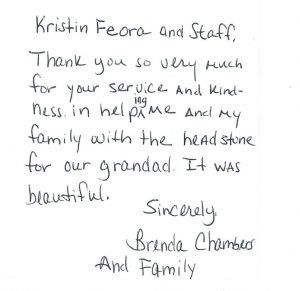 Kristin Feora and Staff,
Thank you so very much
for your service and kind-
ness in helping me and my
family with the headstone
for our grandad. It was
beautiful.
Sincerely,
Brenda Chambers
And Family